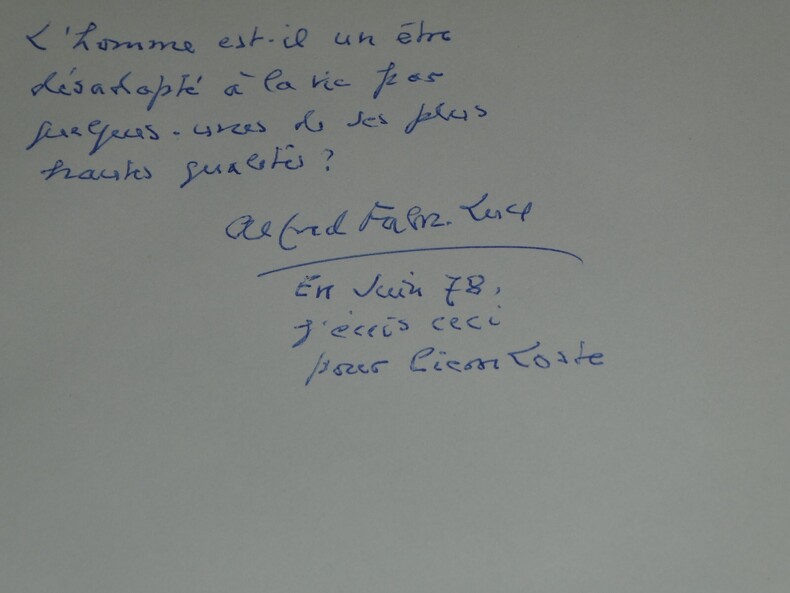 L'homme est-il un être
désadapté à la vie par
quelques-unes de ses plus
hautes qualités ?
Alfred Fabre-Luce
En Juin 78,
j'écris ceci
pour Pierre Coste